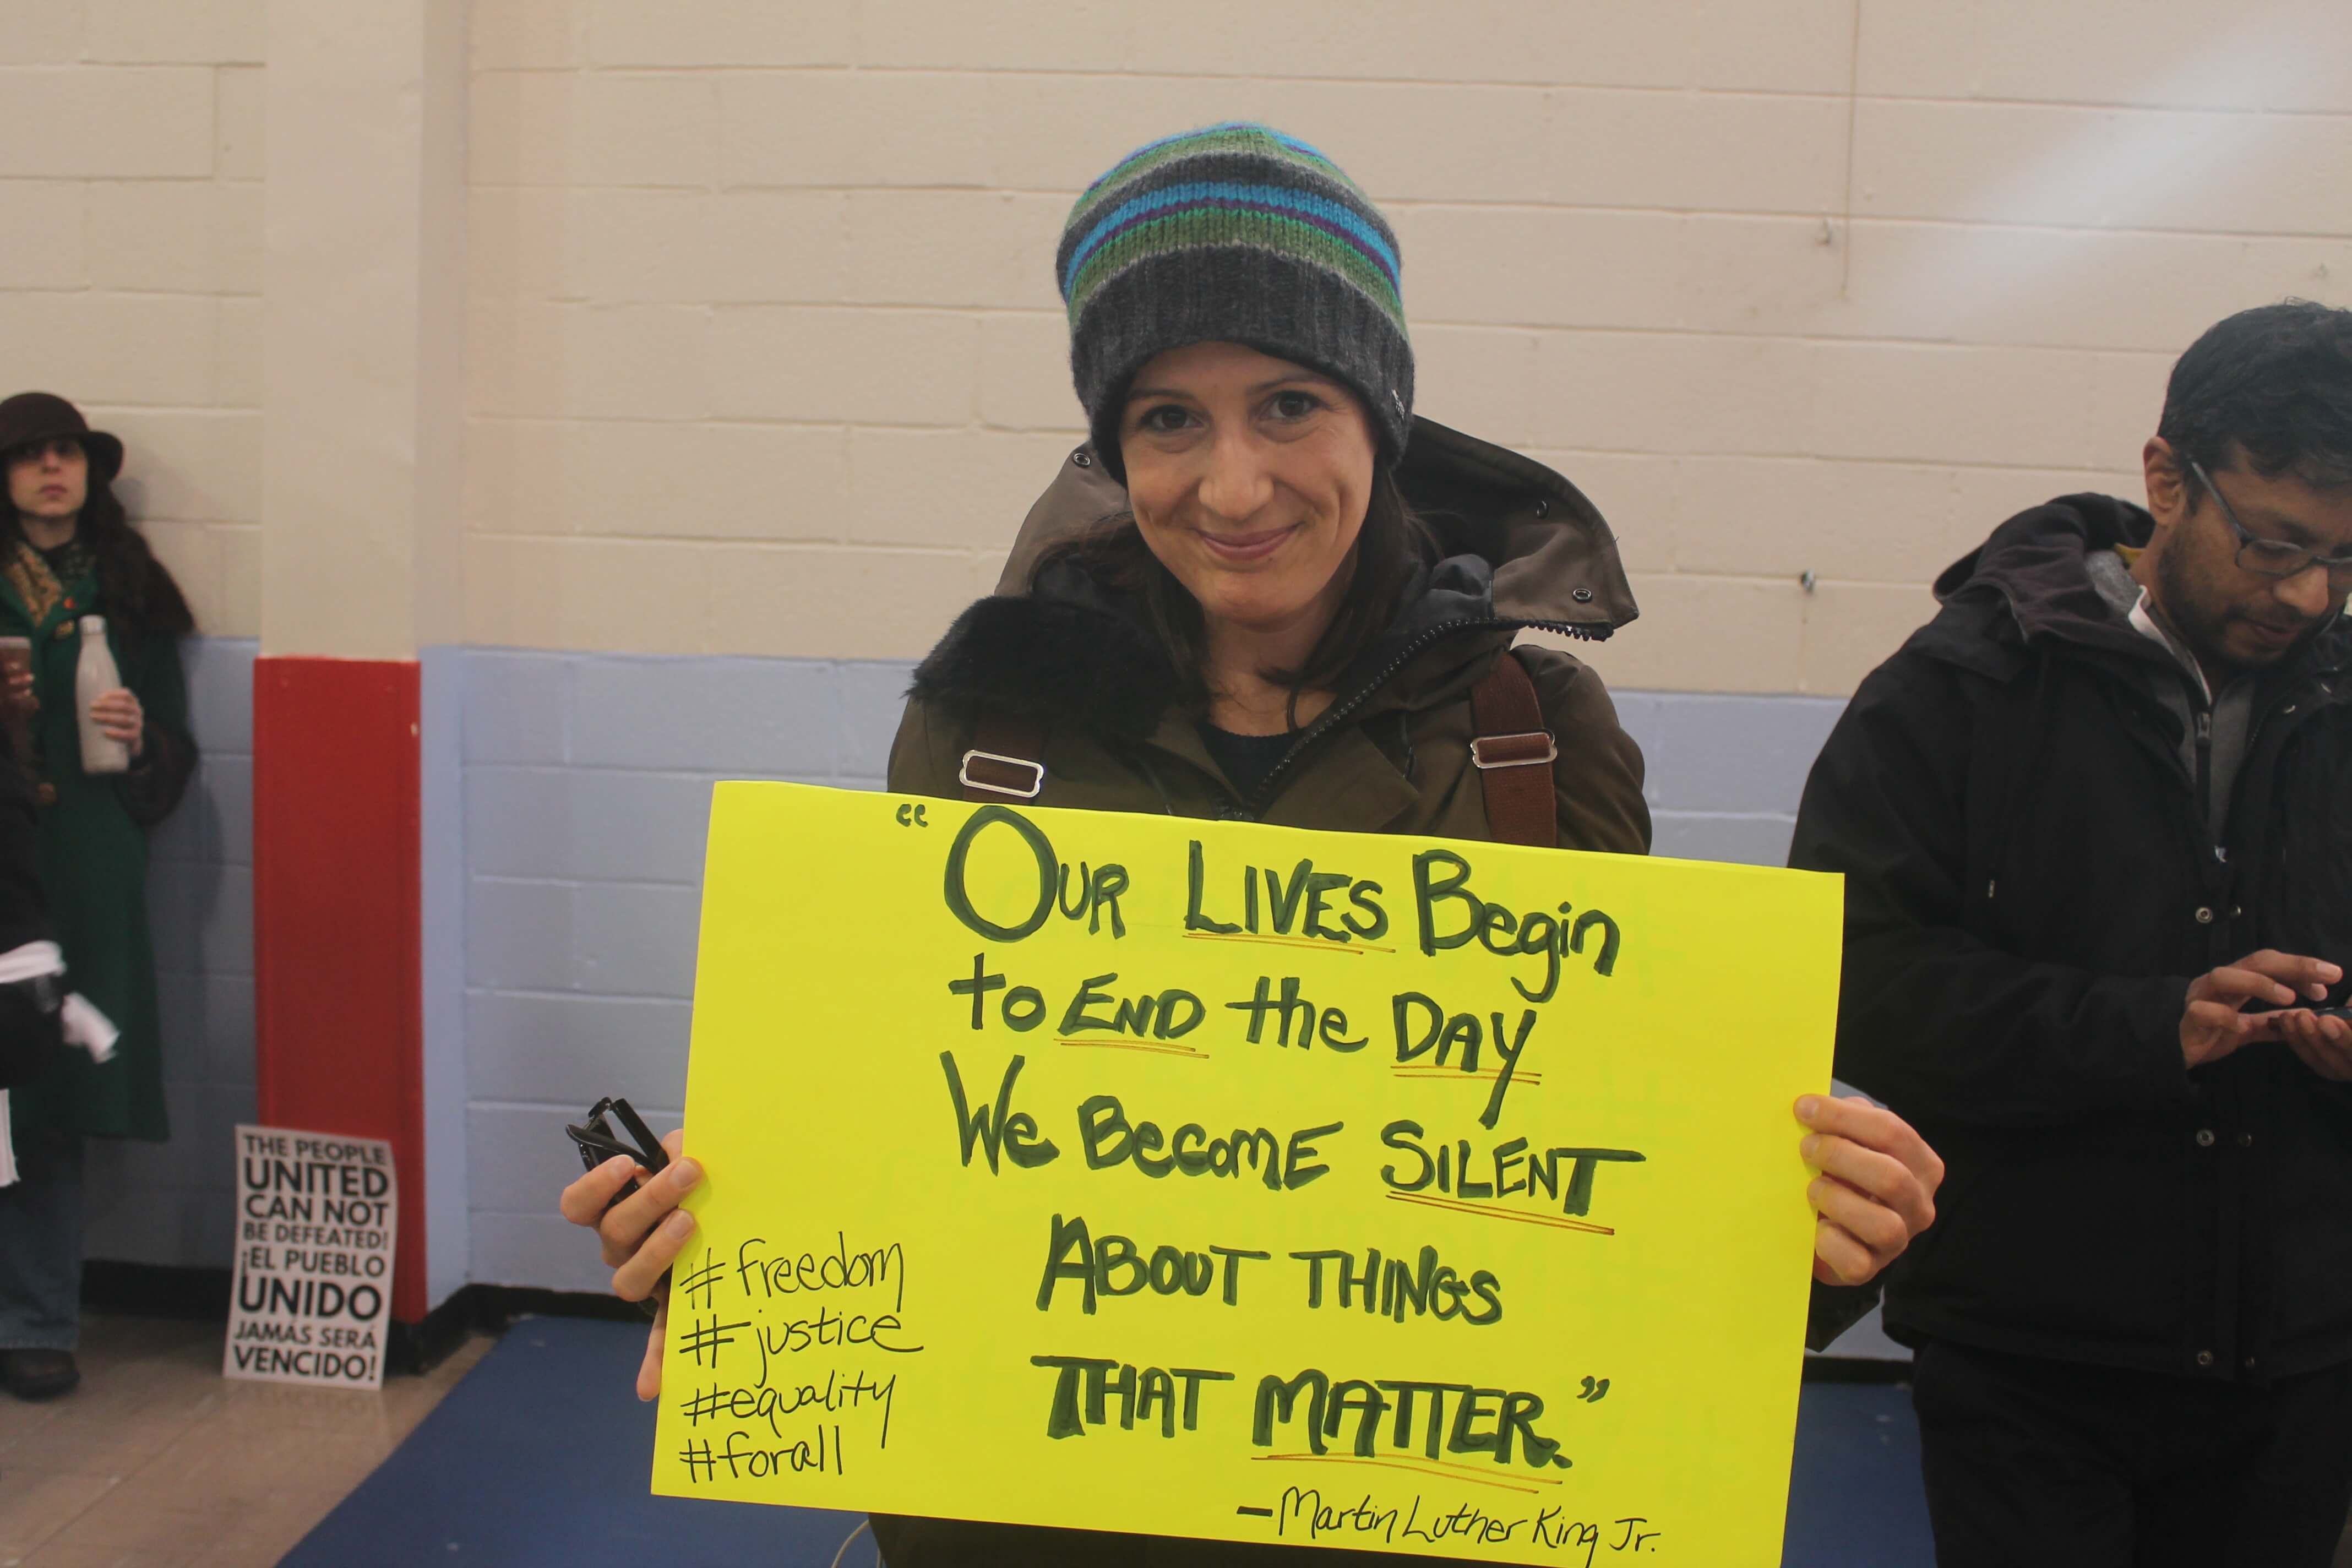 THE PEOPLE
UNITED
CAN NOT
BE DEFEATED!
¡EL PUEBLO
UNIDO
JAMAS SERÁ
VENCIDO!
“OUR LIVES Begin
to END the DAY
We BecomE SILENT
ABOUT THINGS
THAT MATTER.”
—Martin Luther King Jr.
#freedom
#justice
#equality
#forall